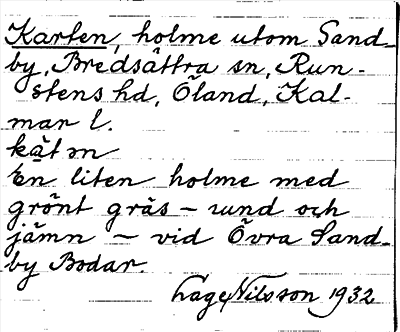 Karten, holme utom Sand-
by, Bredsättra sn, Run-
stens hd, Öland, Kal-
mar l.
En liten holme med
grönt gräs – rund och
jämn – vid Övra Sand-
by Bodar.
Lage Nilsson 1932